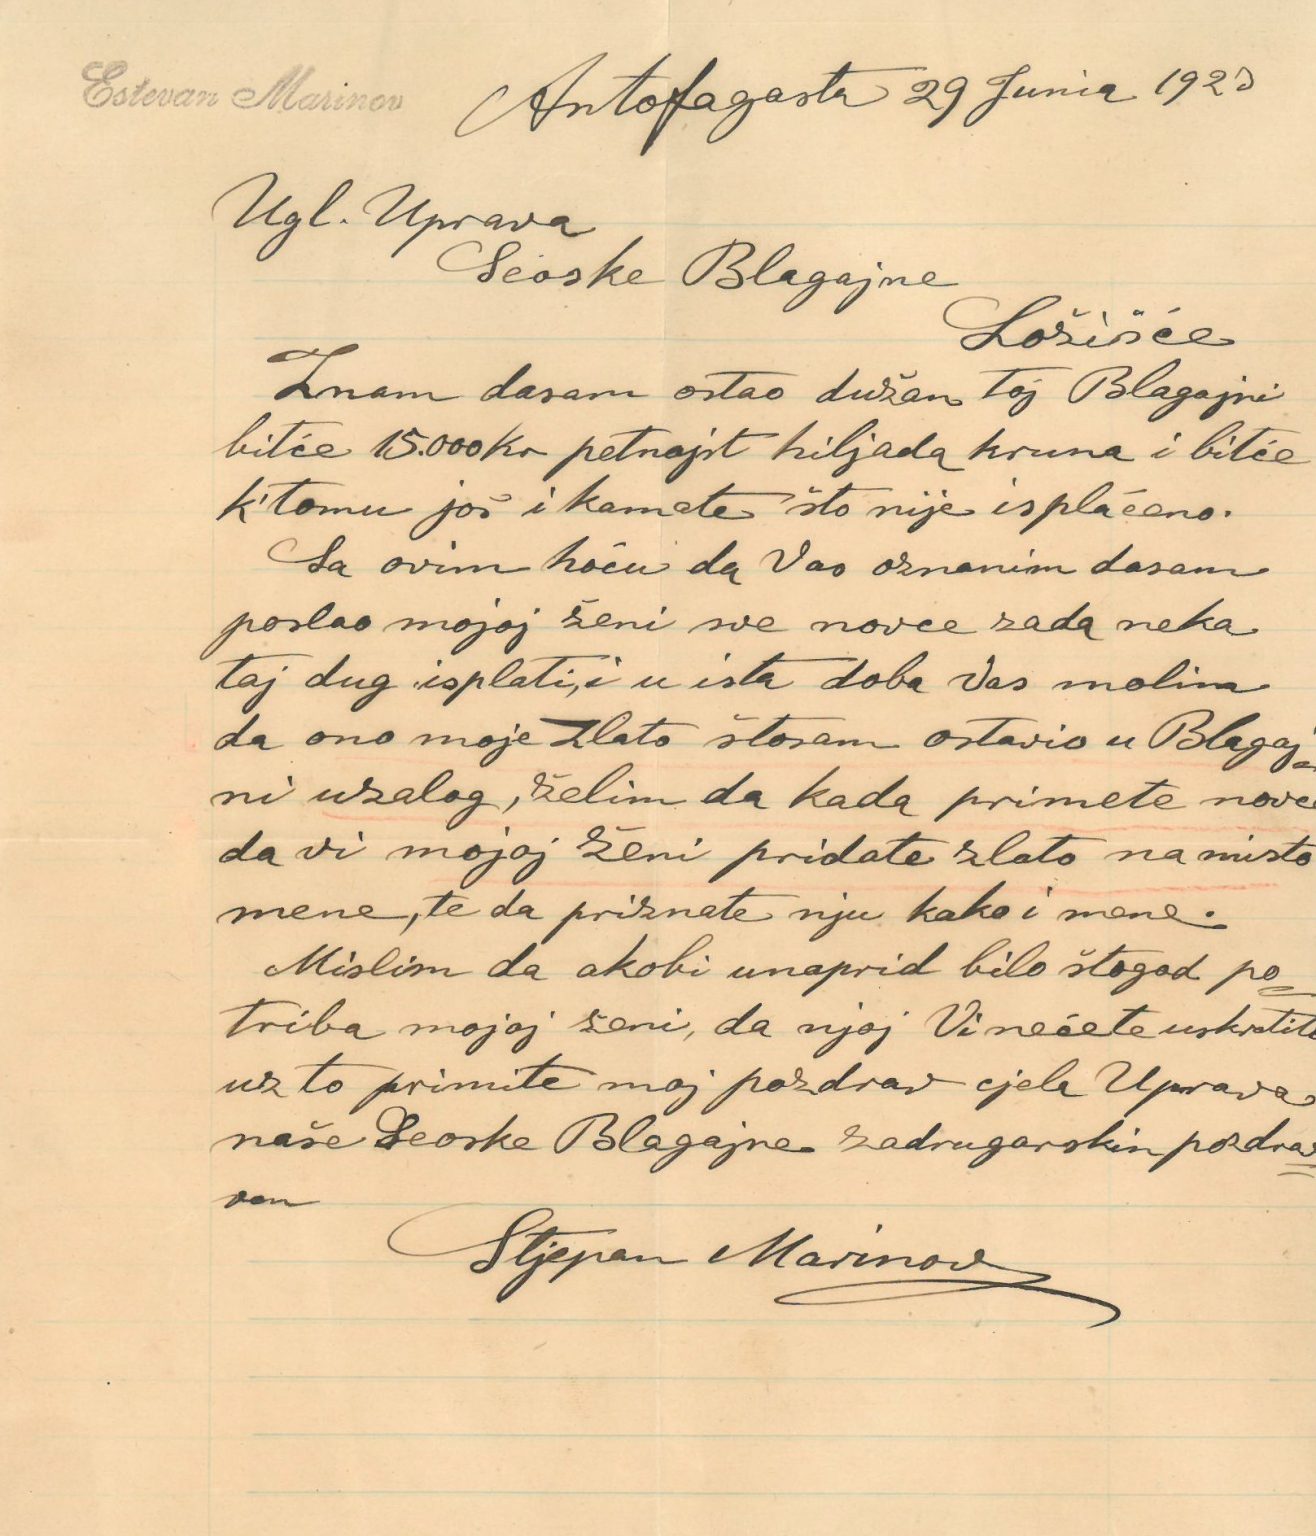 Estevan Marinov
Antofagasta 29 Junia 1923
Ugl. Uprava
Seoske Blagajne
Ložišće
Znam dasam ostao dužan toj Blagajni
bitće 15.000 Kr petnajst hiljada kruna i bitće
k'tomu još i kamate što nije isplaćeno.
Sa ovim hoću da Vas oznanim dasam
poslao mojoj ženi sve novce zada neka
taj dug isplati, i u ista doba Vas molim
da ono moje Zlato štosam ostavio u Blagaj-
ni uzalog, želim da kada primete novce
da vi mojoj Ženi pridate zlato na misto
mene, te da priznate nju kako i mene.
Mislim da akobi unaprid bilo štogod po=
triba mojoj ženi, da njoj Vi nećete uskratiti
uz to primite moj pozdrav cjela Uprava
naše Seoske Blagajne zadrugarskin pozdra=
von
Stjepan Marinov